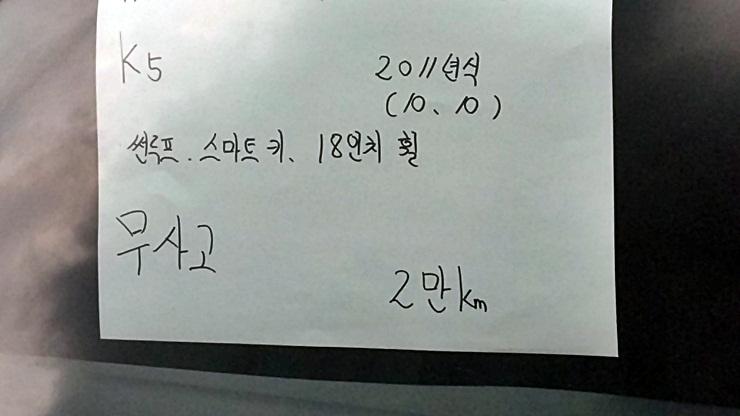 K5 2011년식
(10.10)
썬루프. 스마트키. 18인치 휠
무사고
2만km